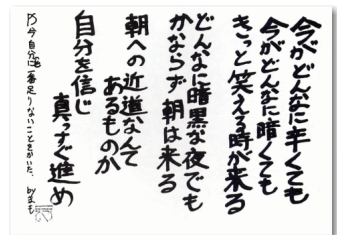 今がどんなに辛くても
今がどんなに暗くても
きっと笑える時が来る
どんなに暗黒な夜でも
かならず朝は来る
朝への近道なんて
あるものか
自分を信じ
真っすぐ進め
今自分に一番足りないことをかいた。 byまも